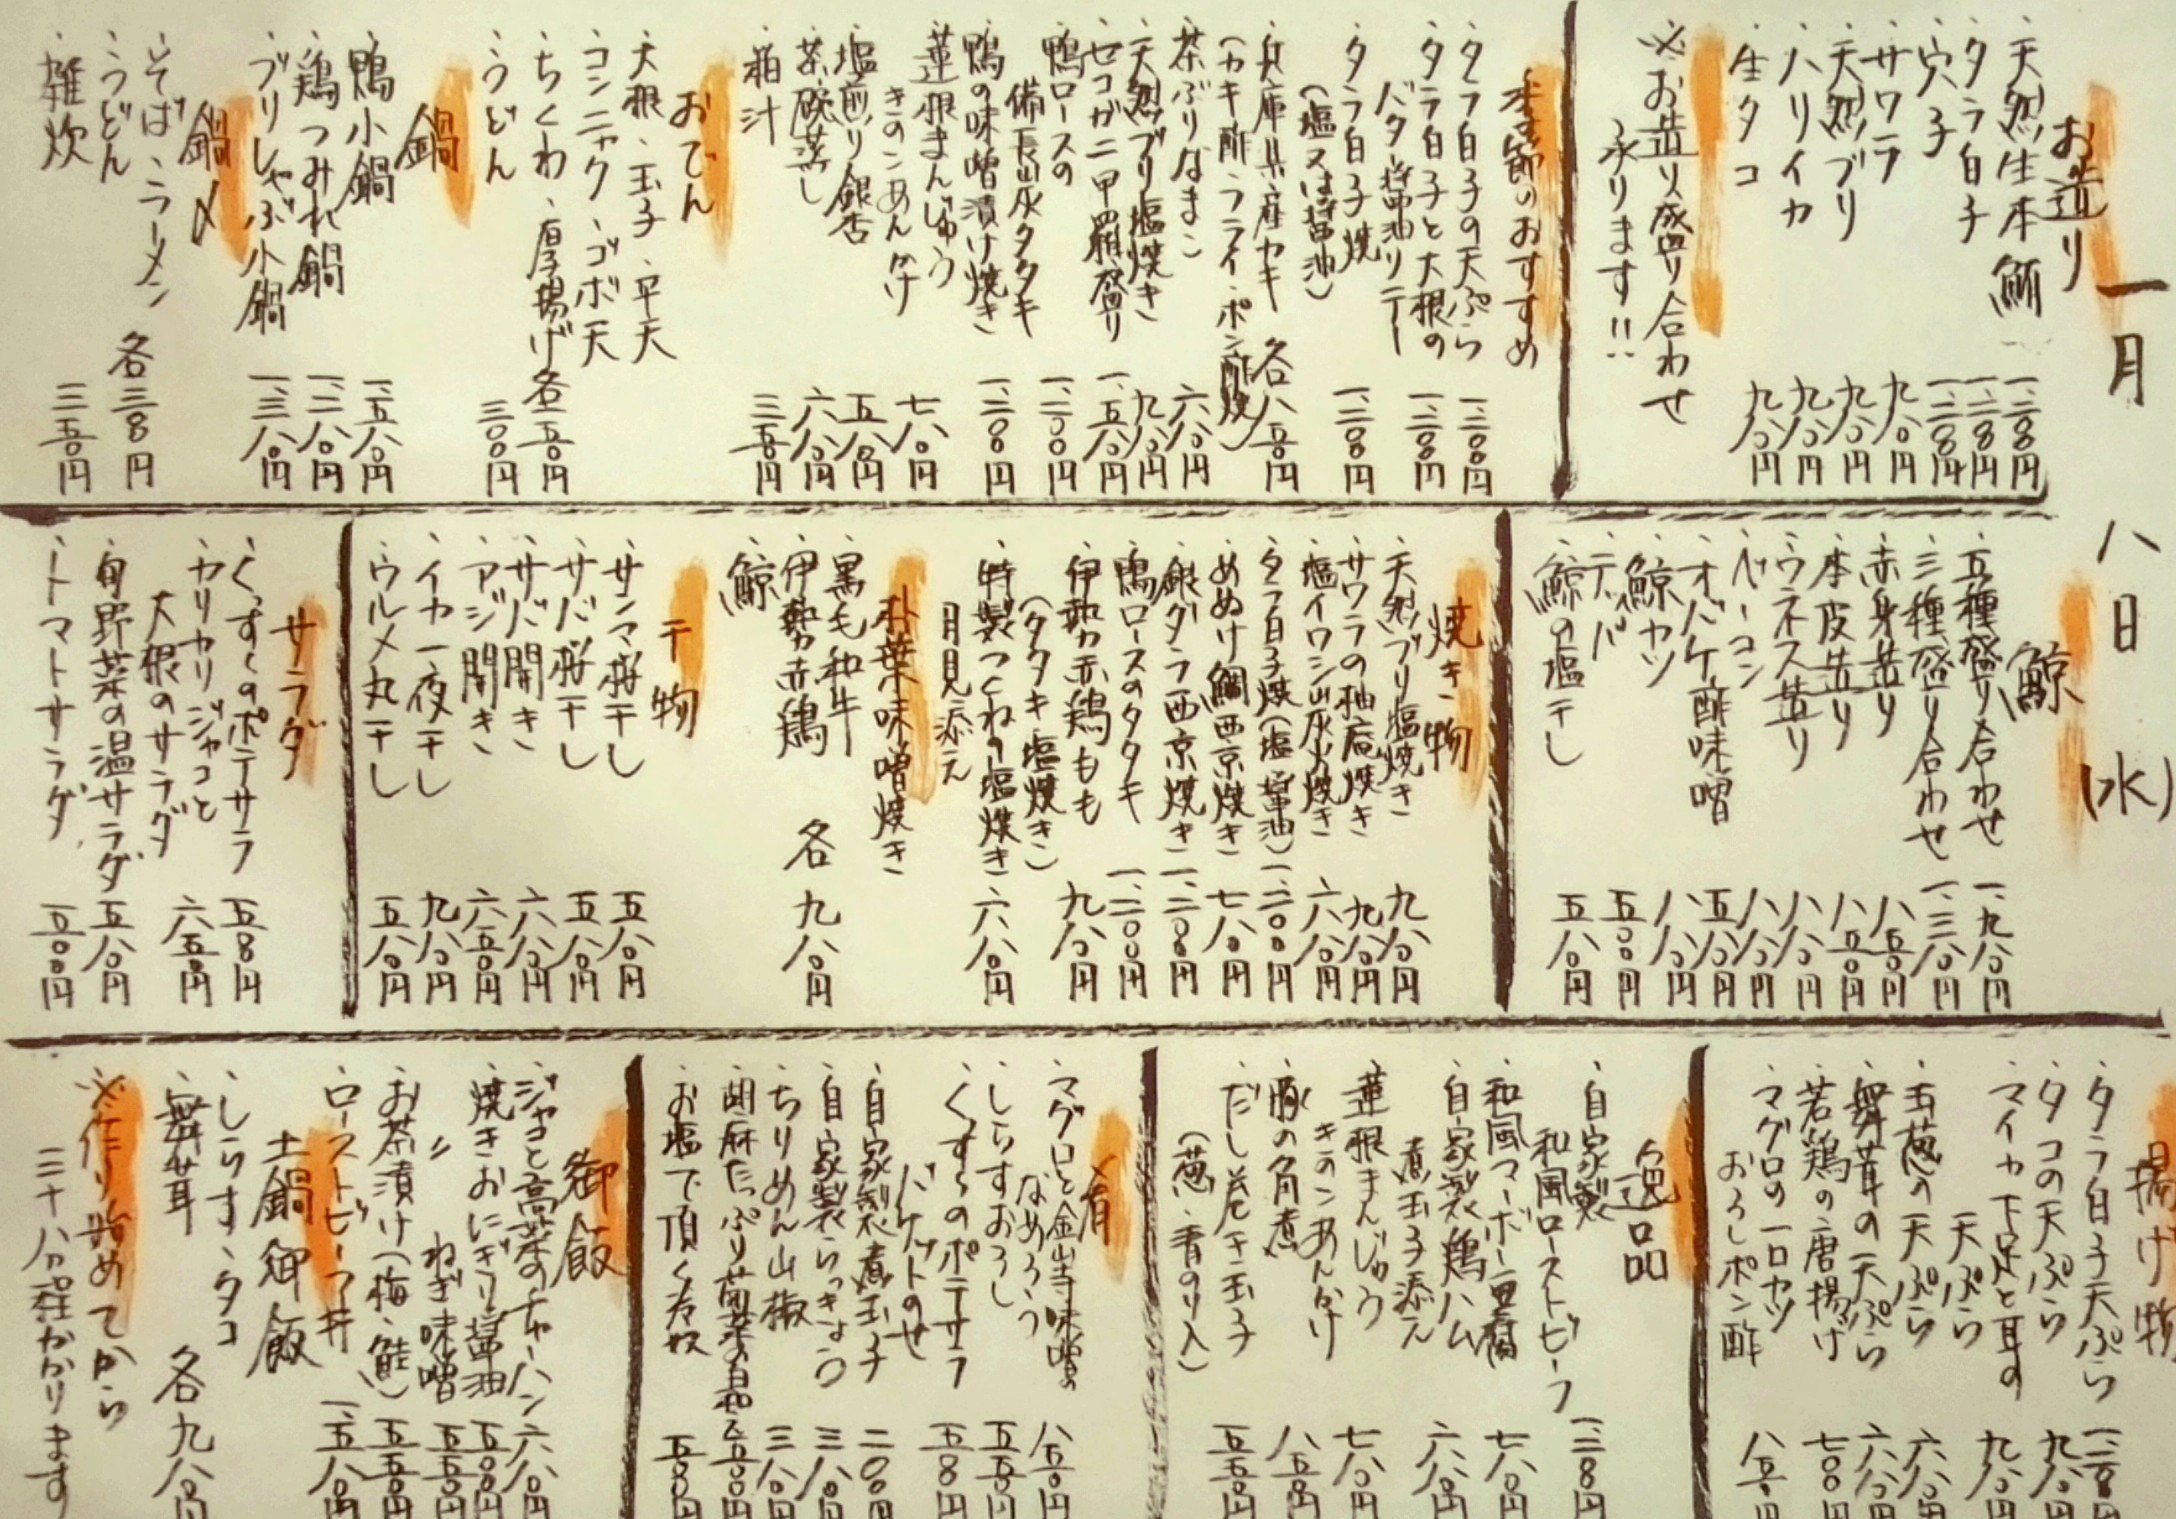 一月八日(水)
お造り
・天然生本鮪 一、二〇〇円
・タラ白子 一、二〇〇円
・穴子 一、二〇〇円
・サワラ 九八〇円
・天然ブリ 九八〇円
・ハリイカ 九八〇円
・生タコ 九八〇円
※お造り盛り合わせ
承ります!!
季節のおすすめ
・タラ白子の天ぷら 一、二〇〇円
・タラ白子と大根の
バター醤油ソテー 一、二〇〇円
・タラ白子焼
(塩又は醤油) 一、二〇〇円
・兵庫県産カキ 各八五〇円
(カキ酢・フライ・ポン酢焼)
・茶ぶりなまこ 六八〇円
・天然ブリ塩焼き 九八〇円
・セコガニ甲羅盛り 一、五八〇円
・鴨ロースの
備長炭タタキ 一、二〇〇円
・鴨の味噌漬け焼き 一、二〇〇円
・蓮根まんじゅう
きのこあんかけ 七八〇円
・塩煎り銀杏 五八〇円
・茶碗蒸し 六八〇円
・粕汁 三五〇円
おでん
・大根・玉子・平天
・コンニャク・ゴボ天
・ちくわ・厚揚げ 各二五〇円
・うどん 三〇〇円
鍋
・鴨小鍋 一、五八〇円
・鶏つみれ鍋 一、二八〇円
・ブリしゃぶ小鍋 一、三八〇円
鍋〆
・そば・ラーメン
・うどん 各三〇〇円
・雑炊 三五〇円
鯨
・五種盛り合わせ 一、九八〇円
・三種盛り合わせ 一、三八〇円
・赤身造り 八五〇円
・本皮造り 八五〇円
・ウネス造り 八八〇円
・ベーコン 八八〇円
・オバケ酢味噌 五八〇円
・鯨カツ 八八〇円
・テッパ 五〇〇円
・鯨の塩干し 五八〇円
焼き物
・天然ブリ塩焼き 九八〇円
・サワラの柚庵焼き 九八〇円
・塩イワシ炭火焼き 六八〇円
・タラ白子焼(塩・醤油) 一、二〇〇円
・めぬけ鯛西京焼き 七八〇円
・銀ダラ西京焼き 一、二〇〇円
・鴨ロースのタタキ 一、二〇〇円
・伊勢赤鶏もも
(タタキ・塩焼き) 九八〇円
・特製つくねの塩焼き 六八〇円
月見添え
朴葉味噌焼き
・黒毛和牛
・伊勢赤鶏 各九八〇円
・鯨
干物
・サンマ桜干し 五八〇円
・サバ桜干し 五八〇円
・サバ開き 六八〇円
・アジ開き 六五〇円
・イカ一夜干し 九八〇円
・ウルメ丸干し 五八〇円
サラダ
・くすくのポテサラ 五〇〇円
・カリカリジャコと
大根のサラダ 六五〇円
・旬野菜の温サラダ 五八〇円
・トマトサラダ 五〇〇円
揚げ物
・タラ白子天ぷら 一、二〇〇円
・タコの天ぷら 九八〇円
・マイカ下足と耳の
天ぷら 九八〇円
・玉葱の天ぷら 六八〇円
・舞茸の天ぷら 六八〇円
・若鶏の唐揚げ 七〇〇円
・マグロの一口カツ
おろしポン酢 八五〇円
逸品
・自家製
和風ローストビーフ 一、二〇〇円
・和風マーボー豆腐 七八〇円
・自家製鶏ハム
煮玉子添え 六八〇円
・蓮根まんじゅう
きのこあんかけ 七八〇円
・豚の角煮 八五〇円
・だし巻き玉子
(葱・青のり入) 五五〇円
肴
・マグロと金山寺味噌の
なめろう 八五〇円
・しらすおろし 五五〇円
・くすくのポテサラ
バケットのせ 五〇〇円
・自家製煮玉子 二〇〇円
・自家製らっきょう 三八〇円
・ちりめん山椒 三八〇円
・胡麻たっぷり
・お塩で頂く冷奴 五〇〇円
御飯
・ジャコと高菜のチャーハン 六八〇円
・焼きおにぎり醤油 五〇〇円
・〃 ねぎ味噌 五五〇円
・お茶漬け(梅・鮭) 五五〇円
・ローストビーフ丼 一、五八〇円
土鍋御飯
・しらす・タコ
・舞茸 各九八〇円
※作り始めてから
三十八分程かかります